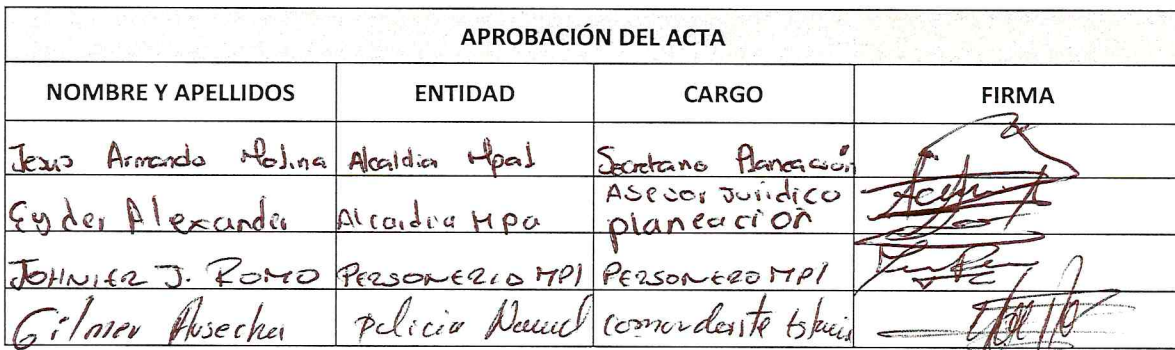 APROBACIÓN DEL ACTA
NOMBRE Y APELLIDOS ENTIDAD CARGO FIRMA
Jesus Armando Molina Alcaldia Mpal Secretario Planeación
Eyder Alexander Alcaldia Mpa Asesor Juridico planeación
JOHNIER J. ROMO PERSONERIA MPl PERSONERO MPl
Gilmer Policia comandante